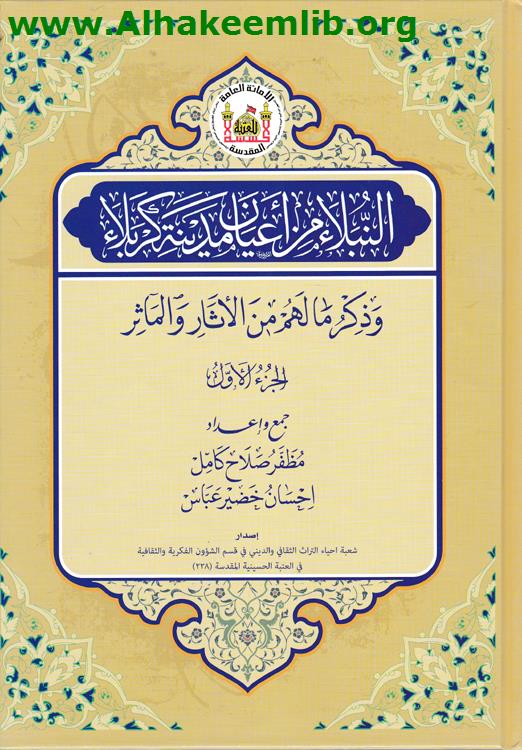 www.Alhakeemlib.org
الأمانة العامة
للعتبة
الحسينية
المقدسة
النبلاء من أعيان مدينة كربلاء
وَذِكْرُ مَا لَهُمْ مِنَ الْأَثَارِ وَالْمَآثِرِ
الجُزءُ الأَوَّلُ
جمع وإعداد
مُظَفَّر صَلاح كَامِل
إحسَانُ خُضَير عَبَّاس
إصدار
شعبة احياء التراث الثقافي والديني في قسم الشؤون الفكرية والثقافية
في العتبة الحسينية المقدسة (٢٣٨)